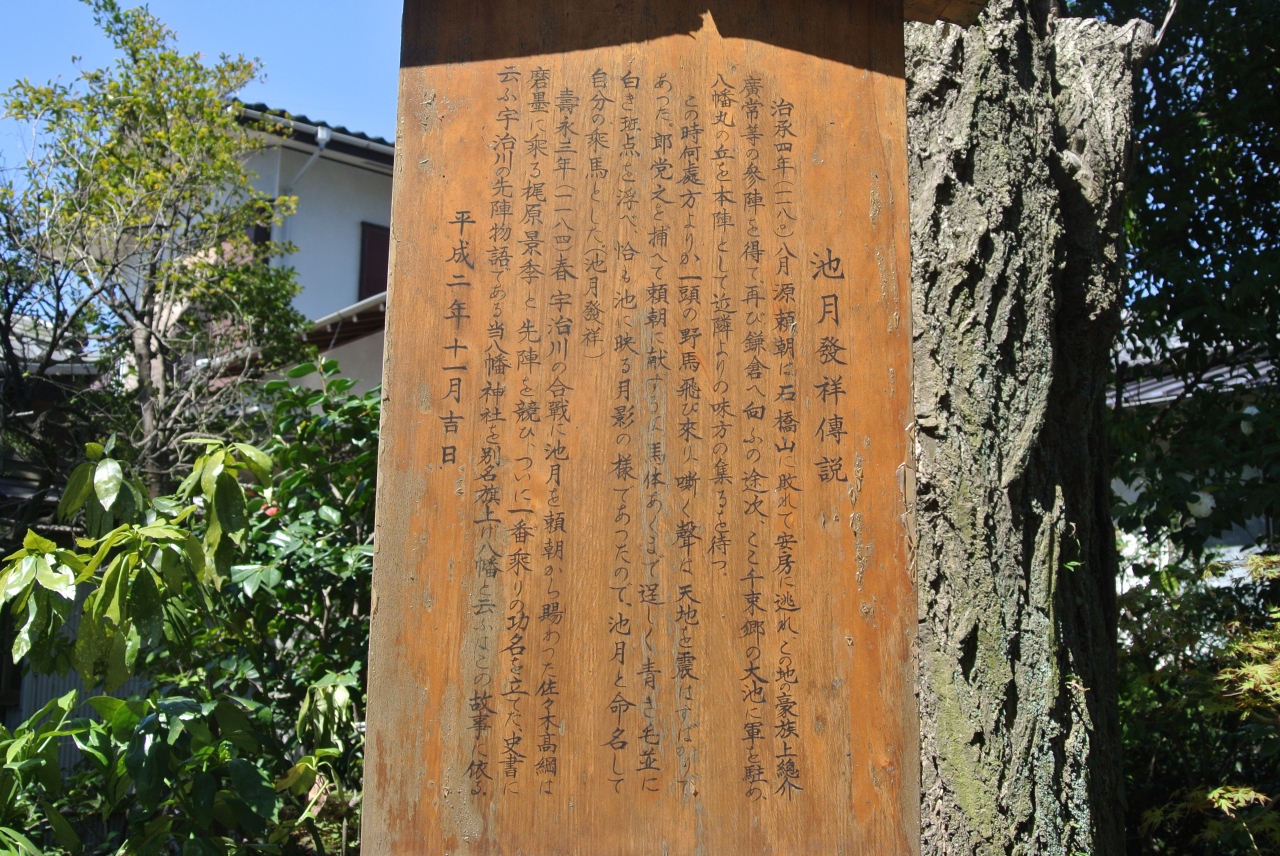 池月發祥傳説
治承四年(一一八〇)八月源頼朝は石橋山に敗れて安房に逃れ、この地の豪族上總介
廣常等の参陣を得て再び鎌倉へ向ふの途次、ここ千束郷の大池に軍を駐め、
八幡丸の丘を本陣として近隣よりの味方の集るを待つ、
この時何處方よりか一頭の野馬飛び來り、嘶く聲は天地を震はすばかりで
あった、郎党之を捕へて頼朝に献ずるに馬体あくまで逞しく青き毛並に
白き班点を浮べ、恰も池に映る月影の様であったので、池月と命名して
自分の乘馬とした、(池月發祥)
壽永三年(一一八四)春宇治川の合戰に池月を頼朝から賜わった佐々木高綱は
磨墨に乘る梶原景季と先陣を競ひ、ついに一番乘りの功名を立てた、史書に
云ふ宇治川の先陣物語である当八幡神社を別名旗上げ八幡と云ふはこの故事に依る
平成二年十一月吉日